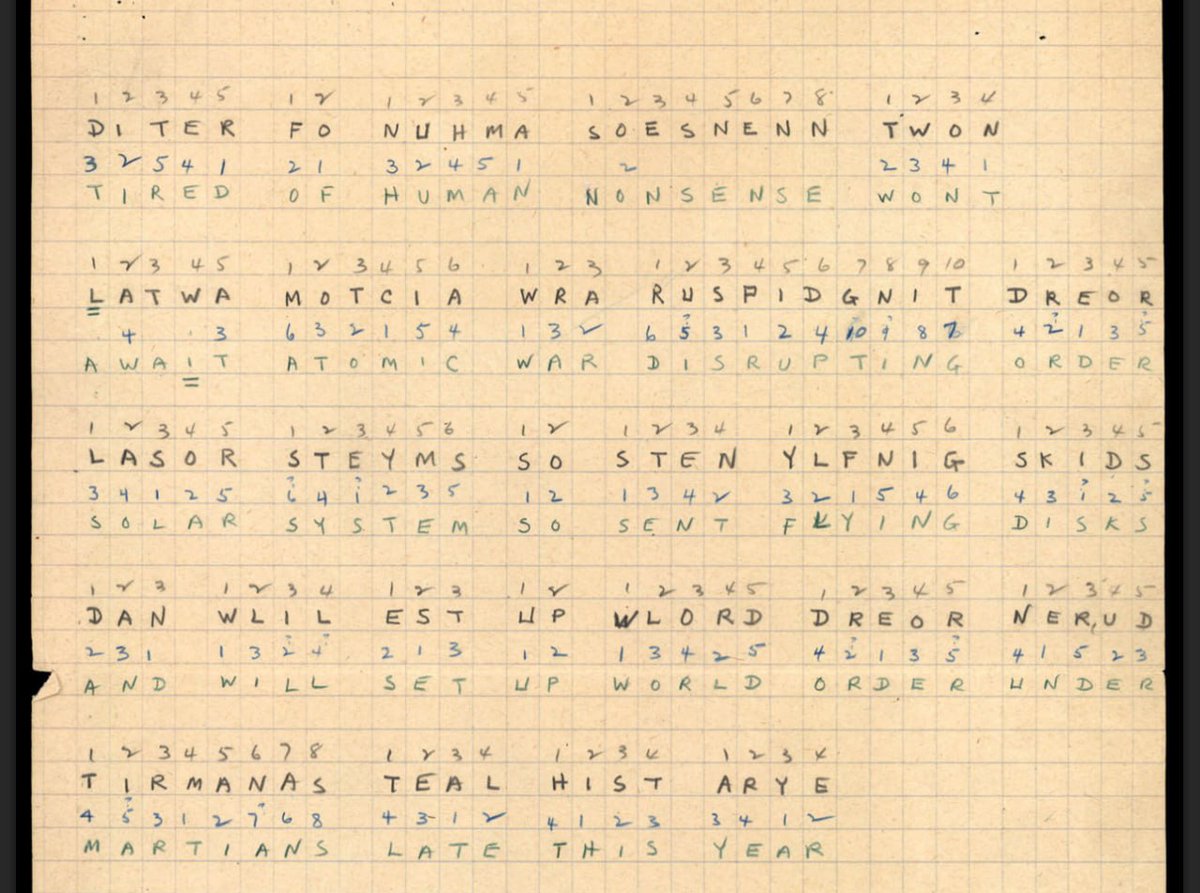 1 2 3 4 5 1 2 1 2 3 4 5 1 2 3 4 5 6 7 8 1 2 3 4
DITER FO NUHMA SOESNENN TWON
3 2 5 4 1 2 1 3 2 4 5 1 2 2 3 4 1
TIRED OF HUMAN NONSENSE WONT
1 2 3 4 5 1 2 3 4 5 6 1 2 3 1 2 3 4 5 6 7 8 9 10 1 2 3 4 5
LATWA MOTCIA WRA RUSPIDGNIT DREOR
4 3 6 3 2 1 5 4 1 3 2 6 5 3 1 2 4 10 9 8 7 4 2 1 3 5
AWAIT ATOMIC WAR DISRUPTING ORDER
1 2 3 4 5 1 2 3 4 5 6 1 2 1 2 3 4 1 2 3 4 5 6 1 2 3 4 5
LASOR STEYMS SO STEN YLFNIG SKIDS
3 4 1 2 5 4 2 3 5 1 2 1 3 4 2 3 2 1 5 4 6 4 3 1 2 5
SOLAR SYSTEM SO SENT FLYING DISKS
1 2 3 1 2 3 4 1 2 3 1 2 1 2 3 4 5 1 2 3 4 5 1 2 3 4 5
DAN WLIL EST UP WLORD DREOR NERUD
2 3 1 1 3 2 4 2 1 3 1 2 1 3 4 2 5 4 2 1 3 5 4 1 5 2 3
AND WILL SET UP WORLD ORDER UNDER
1 2 3 4 5 6 7 8 1 2 3 4 1 2 3 4 1 2 3 4
TIRMANAS TEAL HIST ARYE
4 5 3 1 2 7 6 8 4 3 1 2 4 1 2 3 3 4 1 2
MARTIANS LATE THIS YEAR